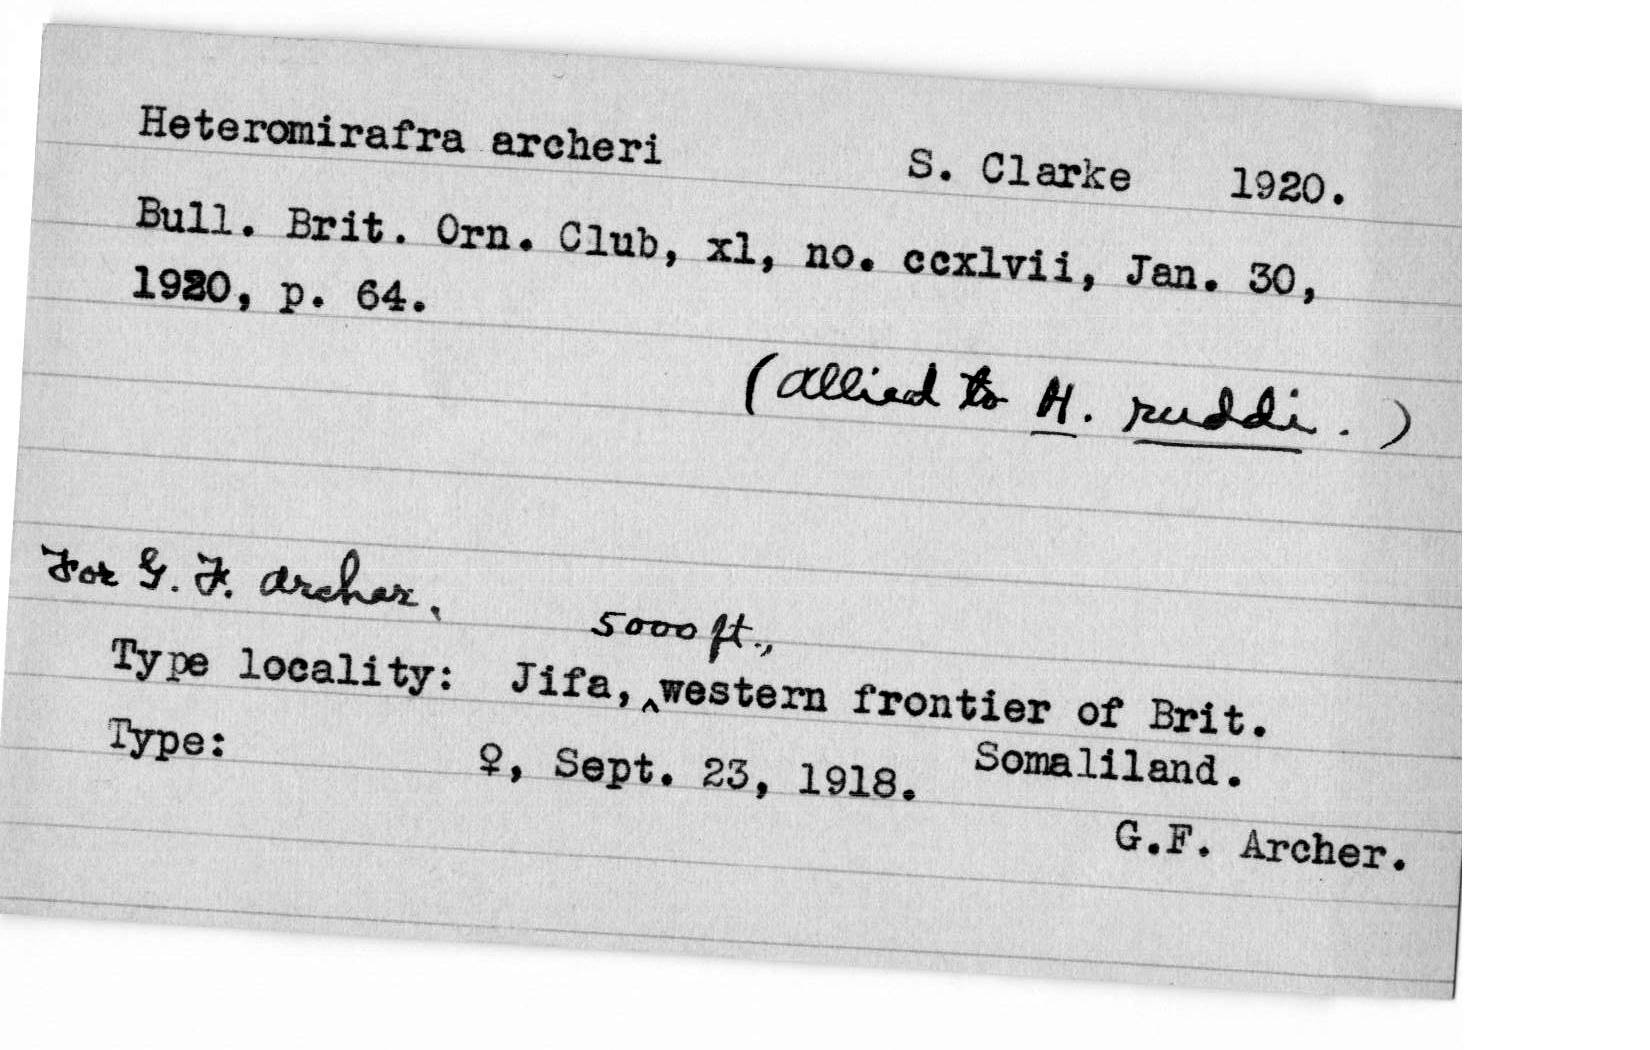 Heteromirafra archeri S. Clarke 1920.
Bull. Brit. Orn. Club, xl, no. ccxlvii, Jan. 30,
1920, p. 64.
(allied to H. ruddi.)
For G. F. Archer.
5000 ft.,
Type locality: Jifa, ^western frontier of Brit.
Somaliland.
Type: ♀, Sept. 23, 1918.
G.F. Archer.